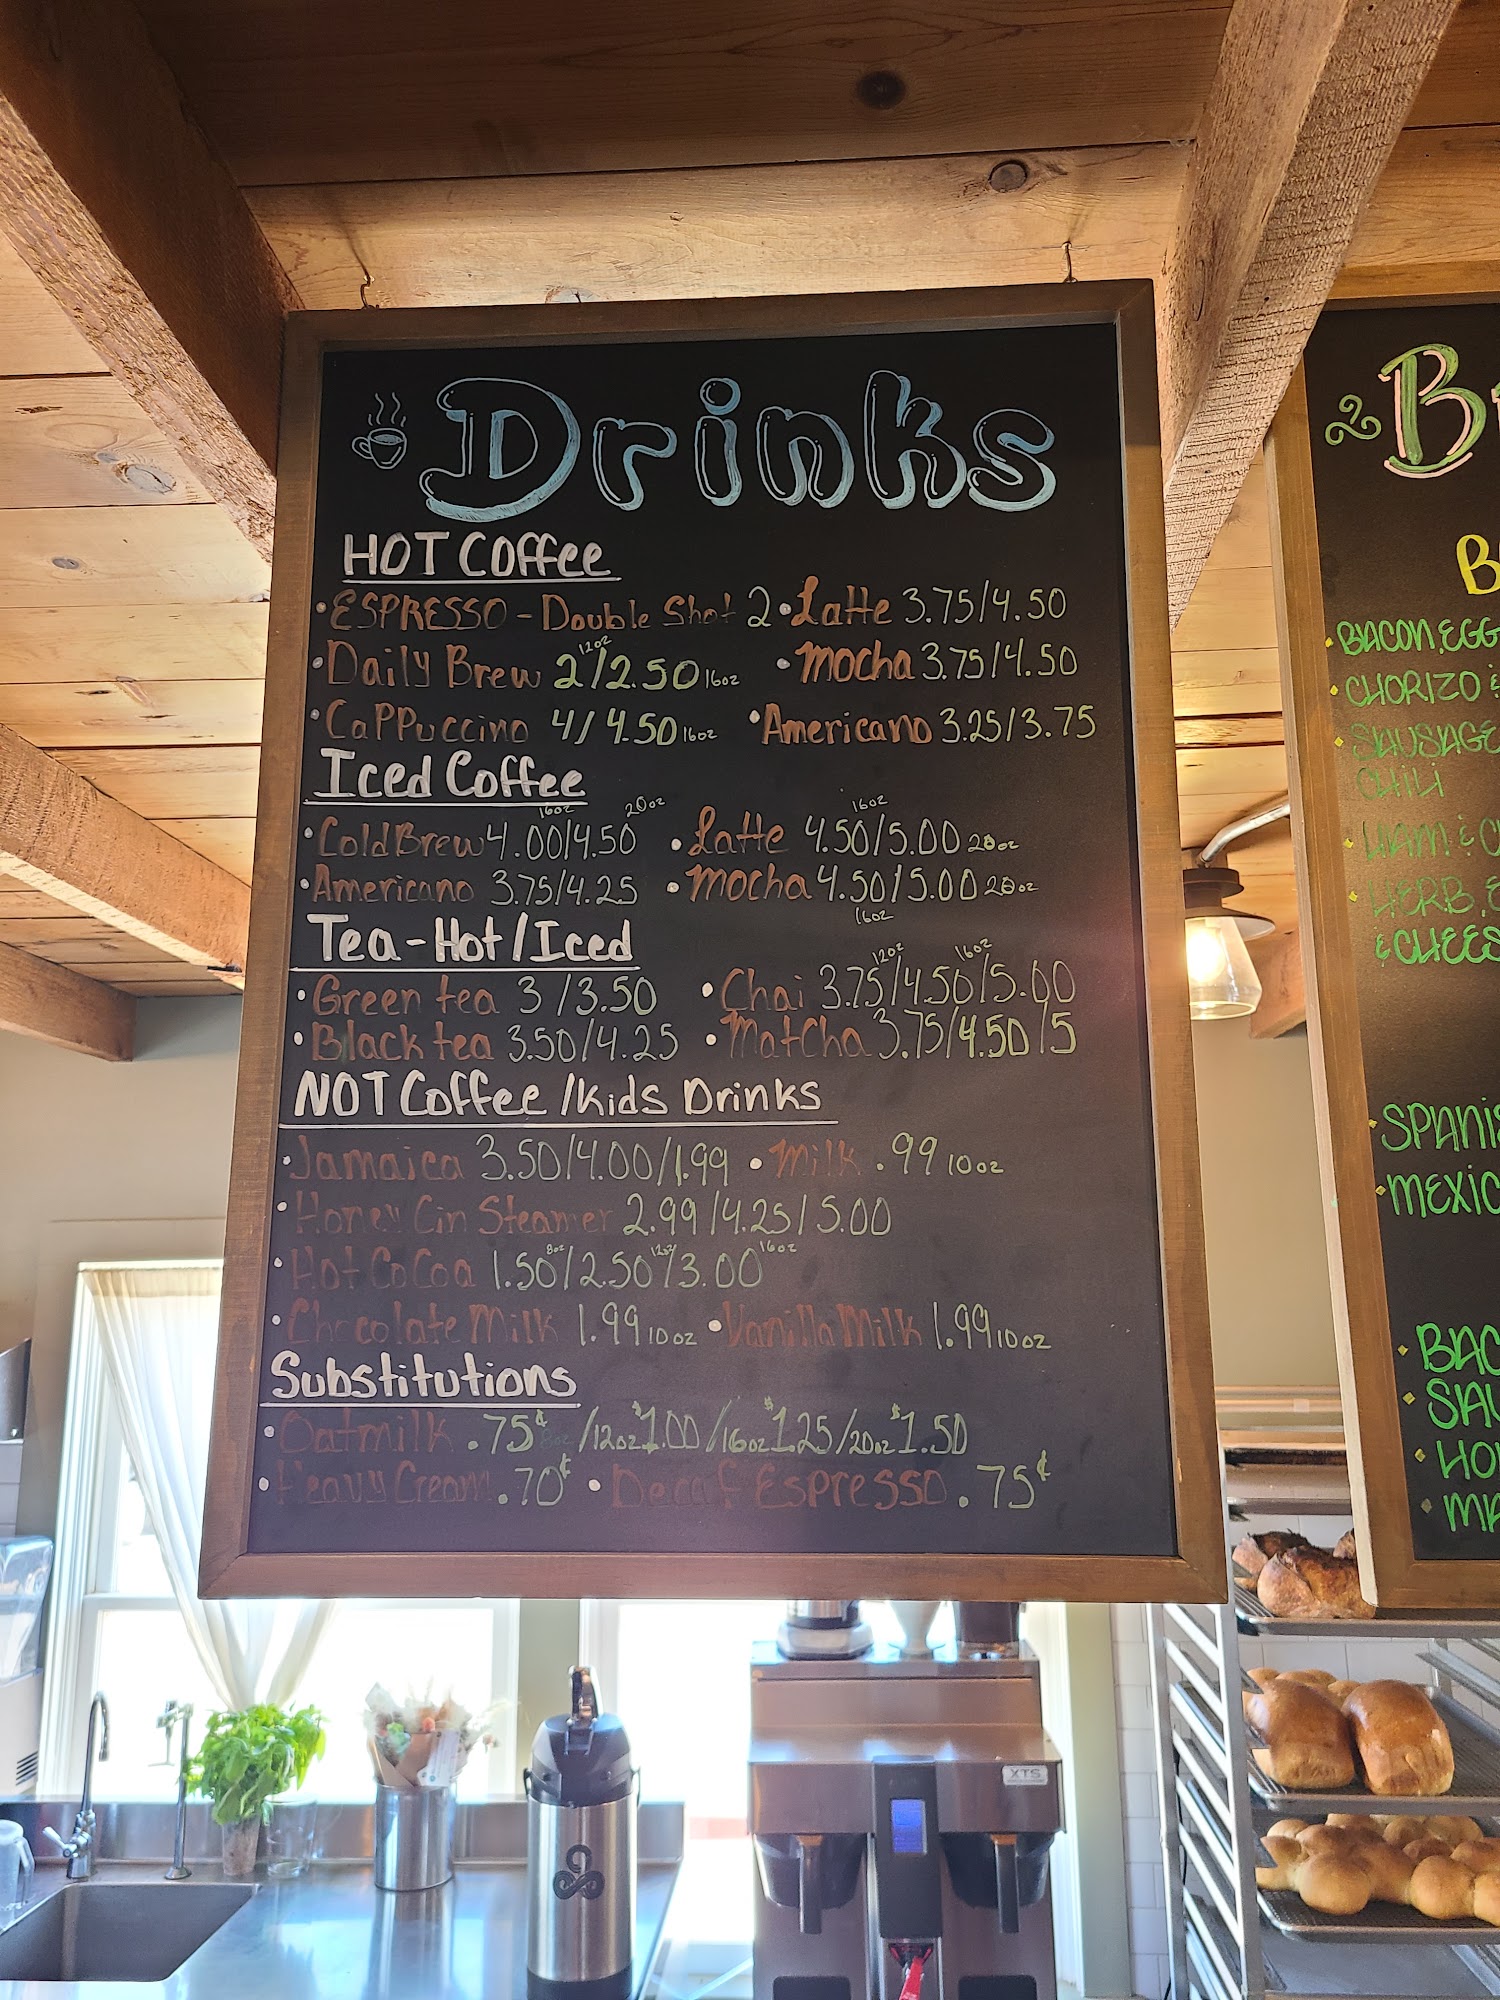 Drinks
HOT Coffee
•ESPRESSO - Double Shot 2 •Latte 3.75/4.50
•Daily Brew 2 12oz/2.50 16oz •Mocha 3.75/4.50
•Cappuccino 4/4.50 16oz •Americano 3.25/3.75
Iced Coffee
•Cold Brew 4.00 16oz/4.50 20oz •Latte 4.50 16oz/5.00 20oz
•Americano 3.75/4.25 •Mocha 4.50 16oz/5.00 20oz
Tea-Hot/Iced
•Green tea 3/3.50 •Chai 3.75 12oz/4.50 16oz/5.00
•Black tea 3.50/4.25 •Matcha 3.75/4.50/5
NOT Coffee/Kids Drinks
•Jamaica 3.50/4.00/1.99 •Milk .99 10oz
•Honey Cin Steamer 2.99/4.25/5.00
•Hot CoCoa 1.50 8oz/2.50 12oz/3.00 16oz
•Chocolate Milk 1.99 10oz •Vanilla Milk 1.99 10oz
Substitutions
•Oatmilk .75¢ 8oz/12oz $1.00/16oz $1.25/20oz $1.50
•Heavy Cream .70¢ •Decaf Espresso .75¢
B
B
BACON, EGG
CHORIZO &
SAUSAGE
CHILI
HAM & C
HERB, E
& CHEES
SPANIS
MEXIC
BAC
SAU
HO
MA
XTS